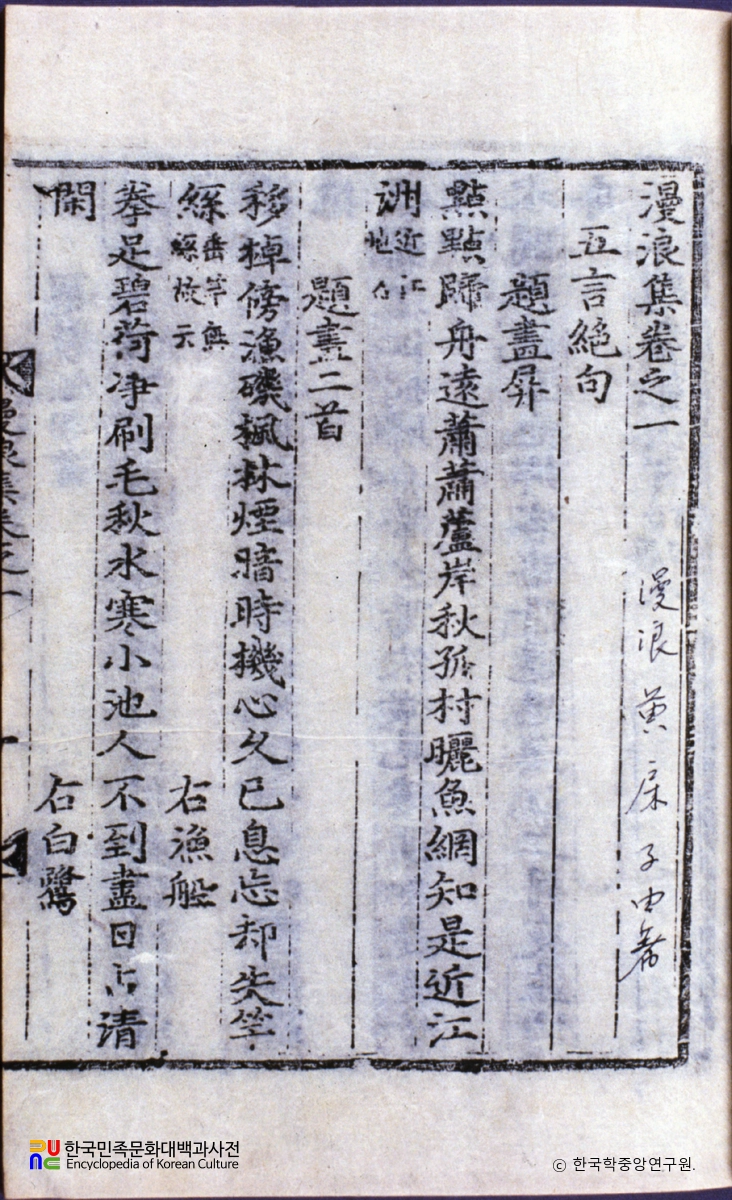 漫浪集卷之一
漫浪 黃㦿 子由著
五言絕句
題畫屛
點點歸舟遠蕭蕭蘆岸秋孤村曬魚網知是近江
洲近江地名
題畫二首
移棹傍漁磯楓林煙暗時機心久已息忘却失竿
絲垂竿無絲故云 右漁船
拳足碧荷净刷毛秋水寒小池人不到盡日占清
閑 右白鷺
漫浪集卷之一
한국민족문화대백과사전
Encyclopedia of Korean Culture
© 한국학중앙연구원.